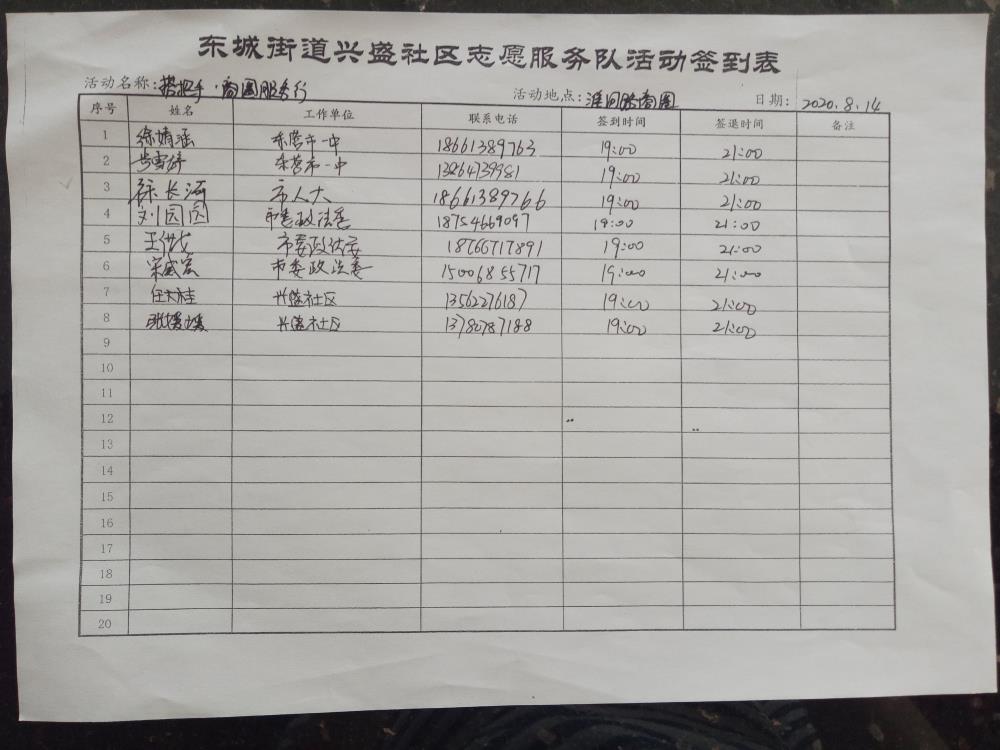 东城街道兴盛社区志愿服务队活动签到表
活动名称：搭把手·商圈服务行 活动地点：淮河路商圈 日期：2020.8.14
序号 姓名 工作单位 联系电话 签到时间 签退时间 备注
1 徐婧涵 东营市一中 18661389763 19:00 21:00
2 东营市一中 13864739981 19:00 21:00
3 徐长河 市人大 18661389766 19:00 21:00
4 刘园园 市委政法委 18754669097 19:00 21:00
5 市委政法委 18766717891 19:00 21:00
6 宋盛宏 市委政法委 15006855717 19:00 21:00
7 任大桂 兴盛社区 13562276187 19:00 21:00
8 张媛媛 兴盛社区 13780787188 19:00 21:00
9
10
11
12
13
14
15
16
17
18
19
20